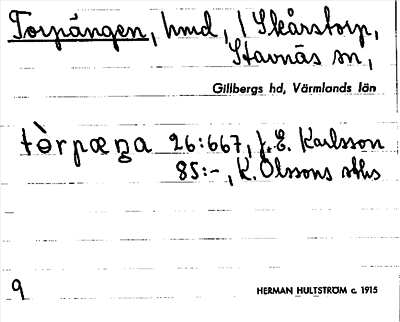 Torpängen, hmd, / Skårstorp,
Stavnäs sn,
Gillbergs hd, Värmlands län
tèrpæŋa 26:667, J. E. Karlsson
85:-, K. Olssons sths
9
HERMAN HULTSTRÖM c. 1915